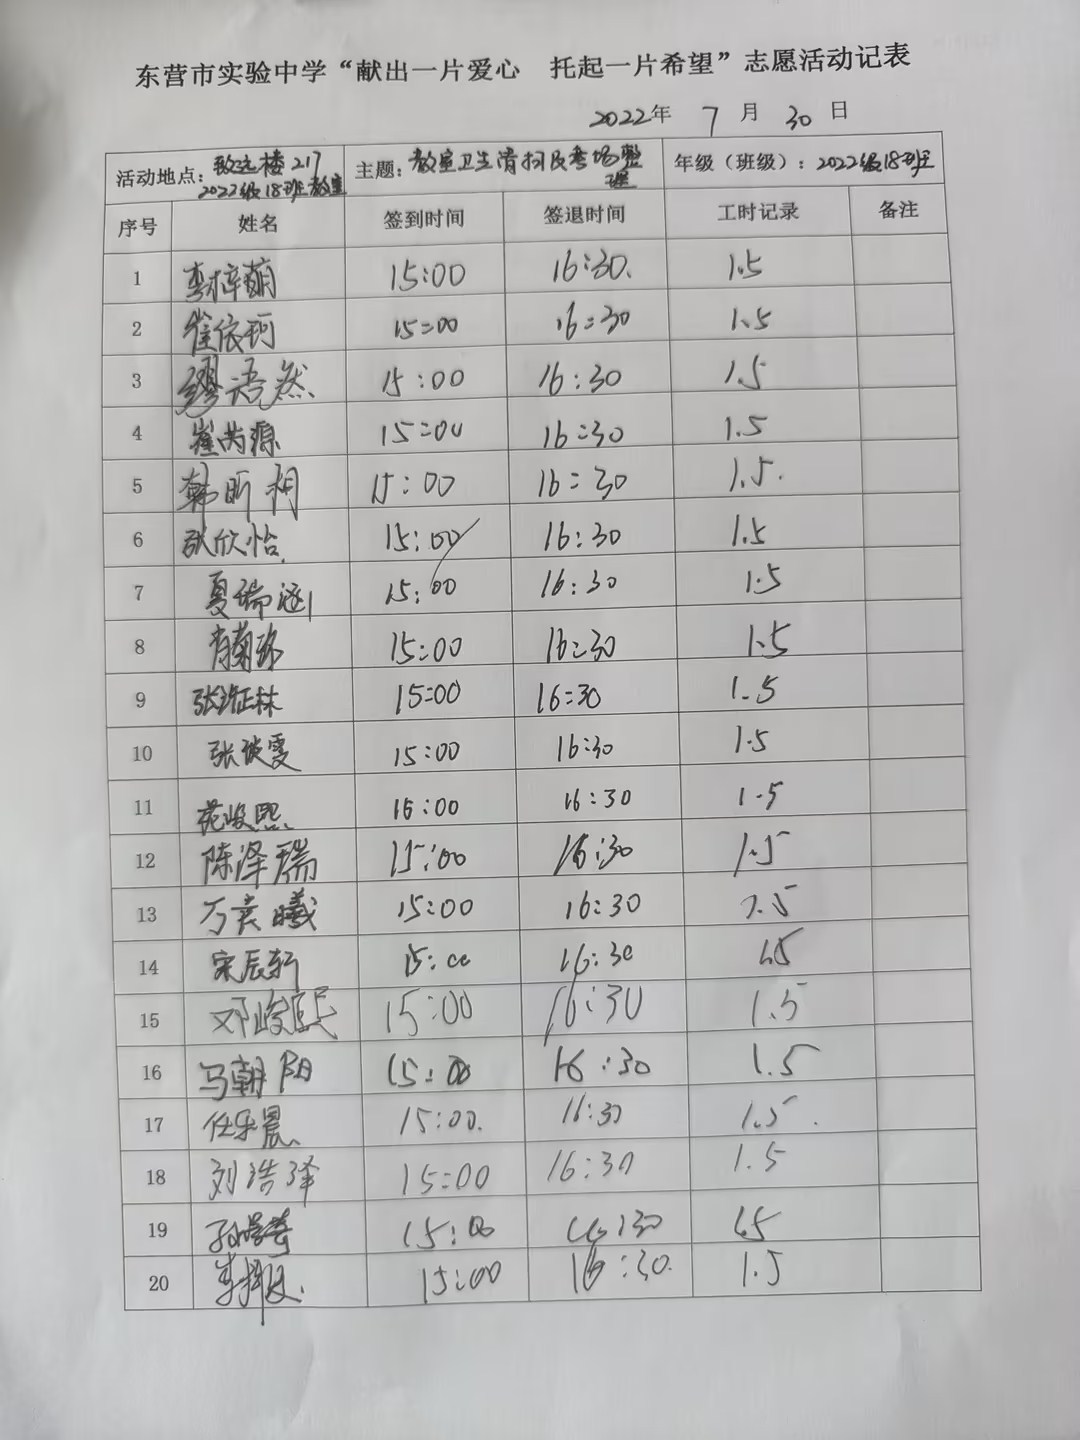 东营市实验中学“献出一片爱心 托起一片希望”志愿活动记表
2022年 7 月 30 日
活动地点：致远楼217 2022级18班教室 主题：教室卫生清扫及考场整理 年级（班级）：2022级18班
序号 姓名 签到时间 签退时间 工时记录 备注
1 李梓萌 15:00 16:30 1.5
2 崔依珂 15:00 16:30 1.5
3 缪语然 15:00 16:30 1.5
4 崔芮源 15:00 16:30 1.5
5 韩昕桐 15:00 16:30 1.5
6 张欣怡 15:00 16:30 1.5
7 夏瑞涵 15:00 16:30 1.5
8 15:00 16:30 1.5
9 张钲林 15:00 16:30 1.5
10 张谈雯 15:00 16:30 1.5
11 苑峻熙 16:00 16:30 1.5
12 陈泽瑞 15:00 16:30 1.5
13 万袁曦 15:00 16:30 1.5
14 宋辰轩 15:00 16:30 1.5
15 邓峻熙 15:00 16:30 1.5
16 马朝阳 15:00 16:30 1.5
17 任乐晨 15:00 16:30 1.5
18 刘浩泽 15:00 16:30 1.5
19 15:00 16:30 1.5
20 15:00 16:30 1.5